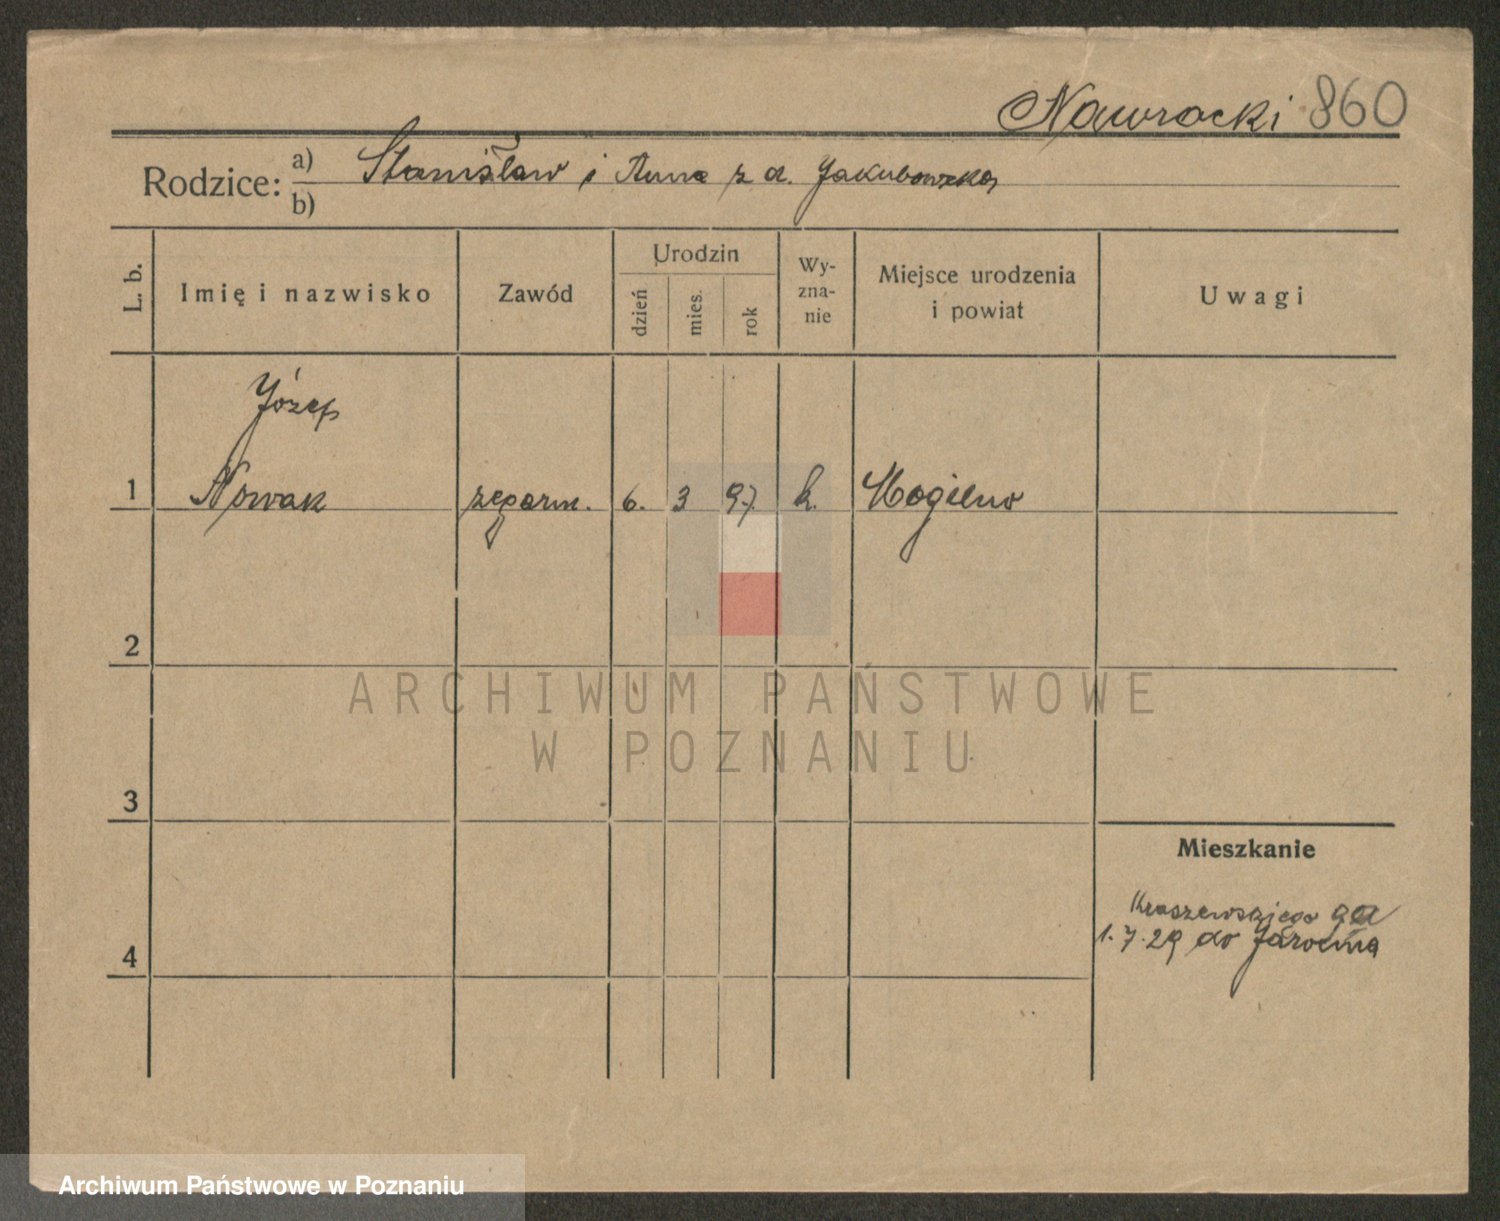 Nawrocki 860
Rodzice: a) Stanisław i Anna z d. Jakubowska
b)
L. b. Imię i nazwisko Zawód Urodzin dzień mies. rok Wyzna-nie Miejsce urodzenia i powiat Uwagi
Józef
1 Nowak zegarm. 6. 3 97. k. Mogilno
2
ARCHIWUM PAŃSTWOWE
W POZNANIU
3
Mieszkanie
Kraszewskiego 9a
1.7.29 do Jarocina
4
Archiwum Państwowe w Poznaniu